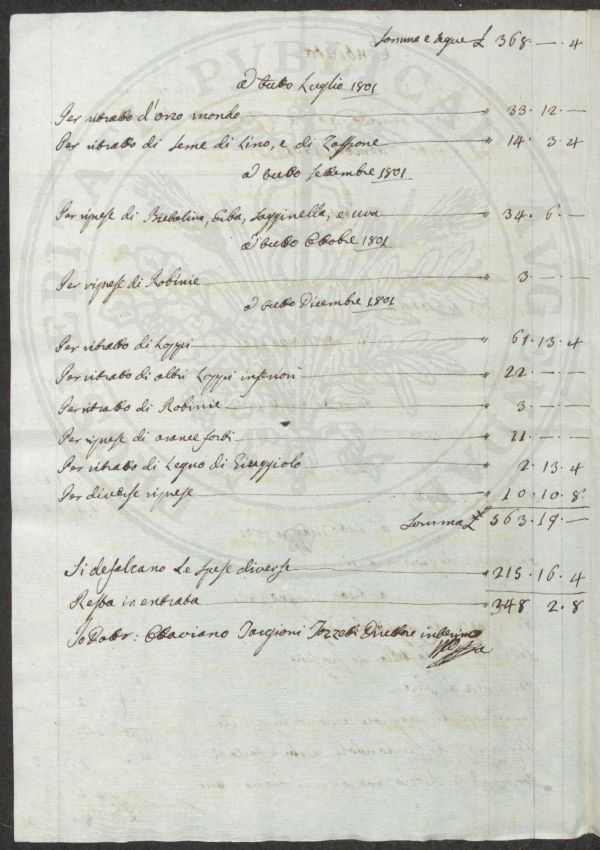 Somma e segue £ 368 . — . 4
A tutto Luglio 1801
Per ritratto d'orzo mondo — " 33 . 12 . —
Per ritratto di Seme di Lino, e di Zaffrone — " 14 . 3 . 4
A tutto Settembre 1801
Per riprese di Sagginella, e uva — " 34 . 6 . —
A tutto Ottobre 1801
Per riprese di Robinie — " 3 . — . —
A tutto Dicembre 1801
Per ritratto di Loppi — " 61 . 13 . 4
Per ritratto di altri Loppi inferiori — " 22 . — . —
Per ritratto di Robinie — " 3 . — . —
Per riprese di arance forti — " 11 . — . —
Per ritratto di Legno di Giuggiolo — " 2 . 13 . 4
Per diverse riprese — " 10 . 10 . 8
Somma £ 563 . 19 . —
Si defalcano Le spese diverse — " 215 . 16 . 4
Resta in entrata — " 348 . 2 . 8
Io Dottr: Ottaviano Targioni Tozzetti Direttore